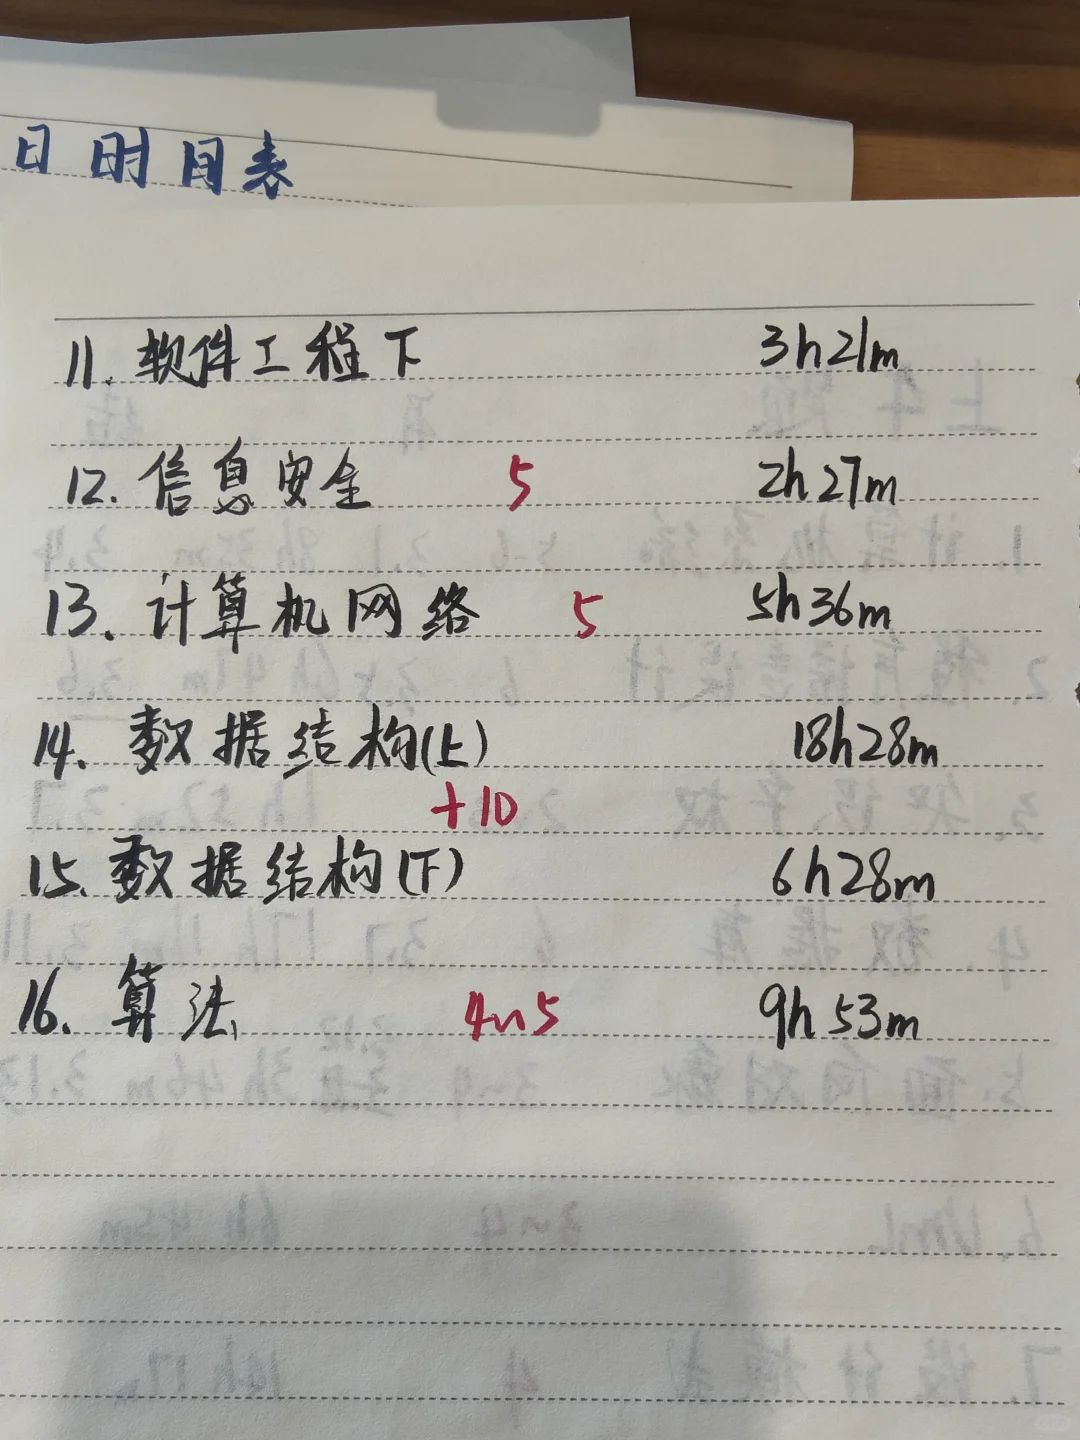 日时间表
11. 软件工程下 3h21m
12. 信息安全 5 2h27m
13. 计算机网络 5 5h36m
14. 数据结构(上) 18h28m
+10
15. 数据结构(下) 6h28m
16. 算法 4~5 9h53m